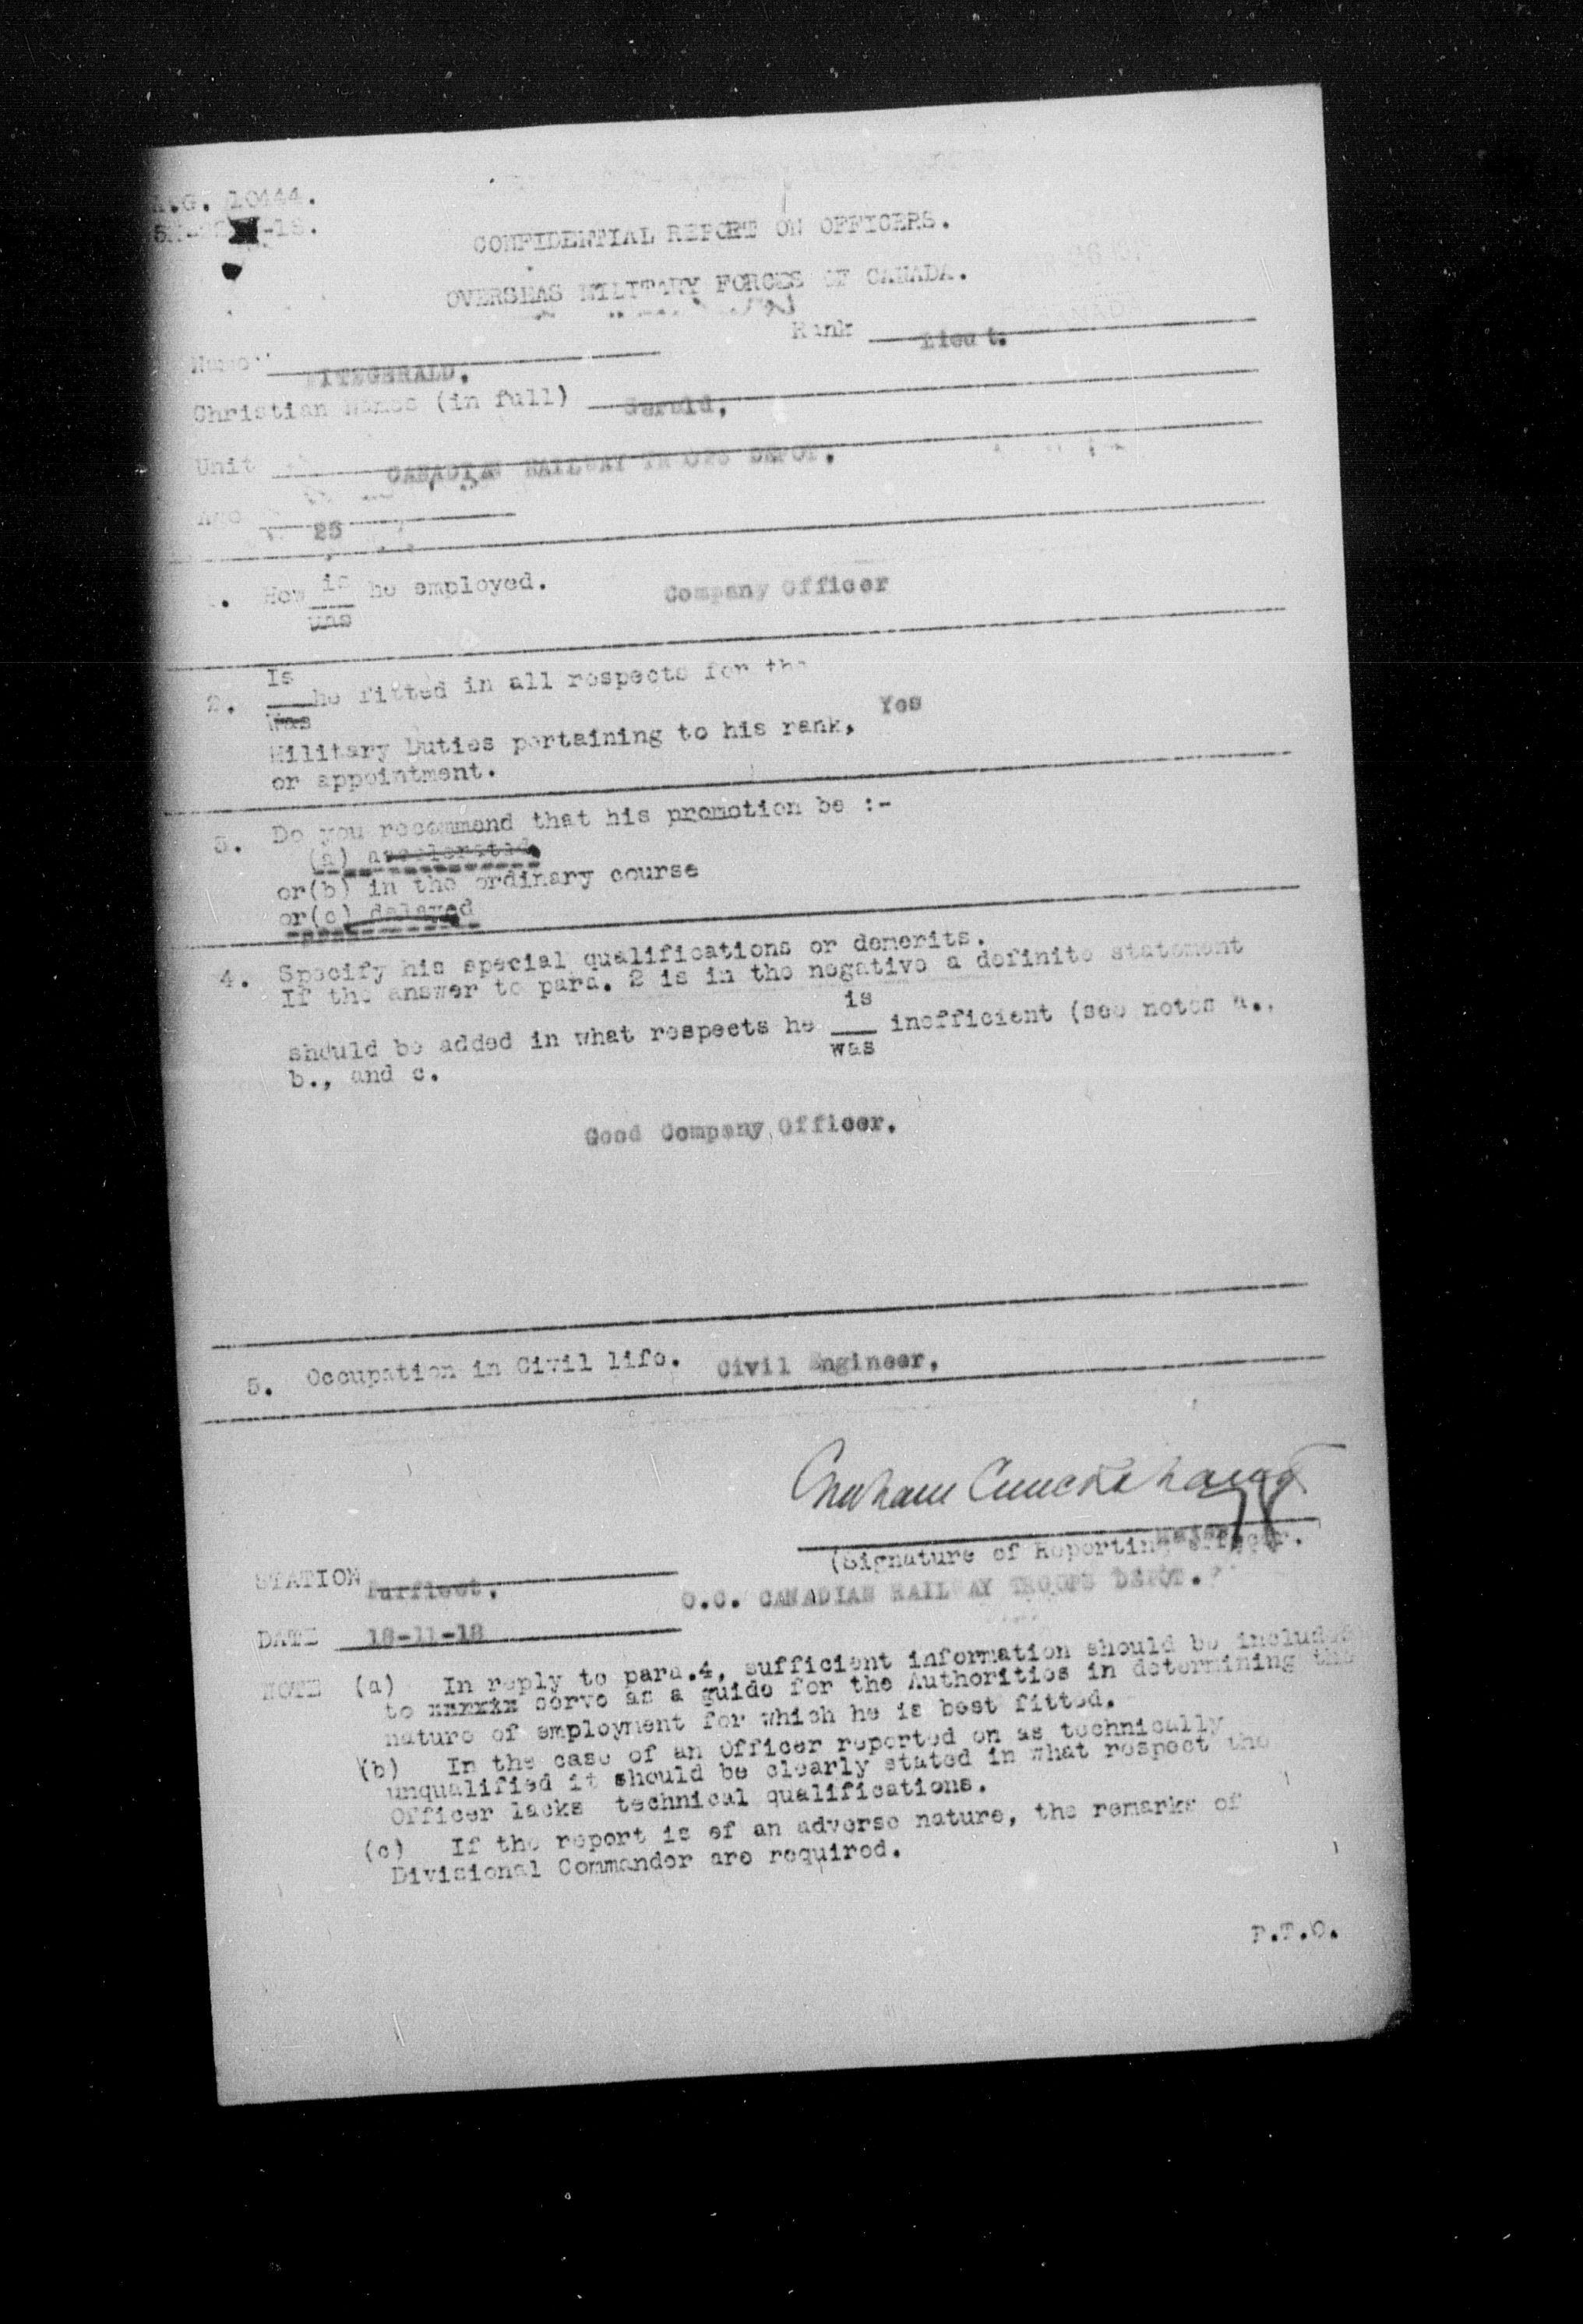 10444.
CONFIDENTIAL REPORT ON OFFICERS.
OVERSEAS MILITARY FORCES OF CANADA.
Name FITZGERALD. Rank Lieut.
Christian Names (in full) Gerald,
Unit CANADIAN RAILWAY TROOPS DEPOT.
Age 25
How is he employed. Company Officer
was
Is
2. he fitted in all respects for the
Was
Military Duties pertaining to his rank, Yes
or appointment.
3. Do you recommend that his promotion be :-
(a) accelerated
or(b) in the ordinary course
or(c) delayed
4. Specify his special qualifications or demerits.
If the answer to para. 2 is in the negative a definite statement
is
should be added in what respects he inefficient (see notes a.,
was
b., and c.
Good Company Officer.
5. Occupation in Civil life. Civil Engineer.
Major
(Signature of Reporting Officer.
STATION Purfleet.
O.C. CANADIAN RAILWAY TROOPS DEPOT.
DATE 18-11-18
NOTE (a) In reply to para.4, sufficient information should be included
to xxxxix serve as a guide for the Authorities in determining the
nature of employment for which he is best fitted.
(b) In the case of an Officer reported on as technically
unqualified it should be clearly stated in what respect the
Officer lacks technical qualifications.
(c) If the report is of an adverse nature, the remarks of
Divisional Commander are required.
P.T.O.